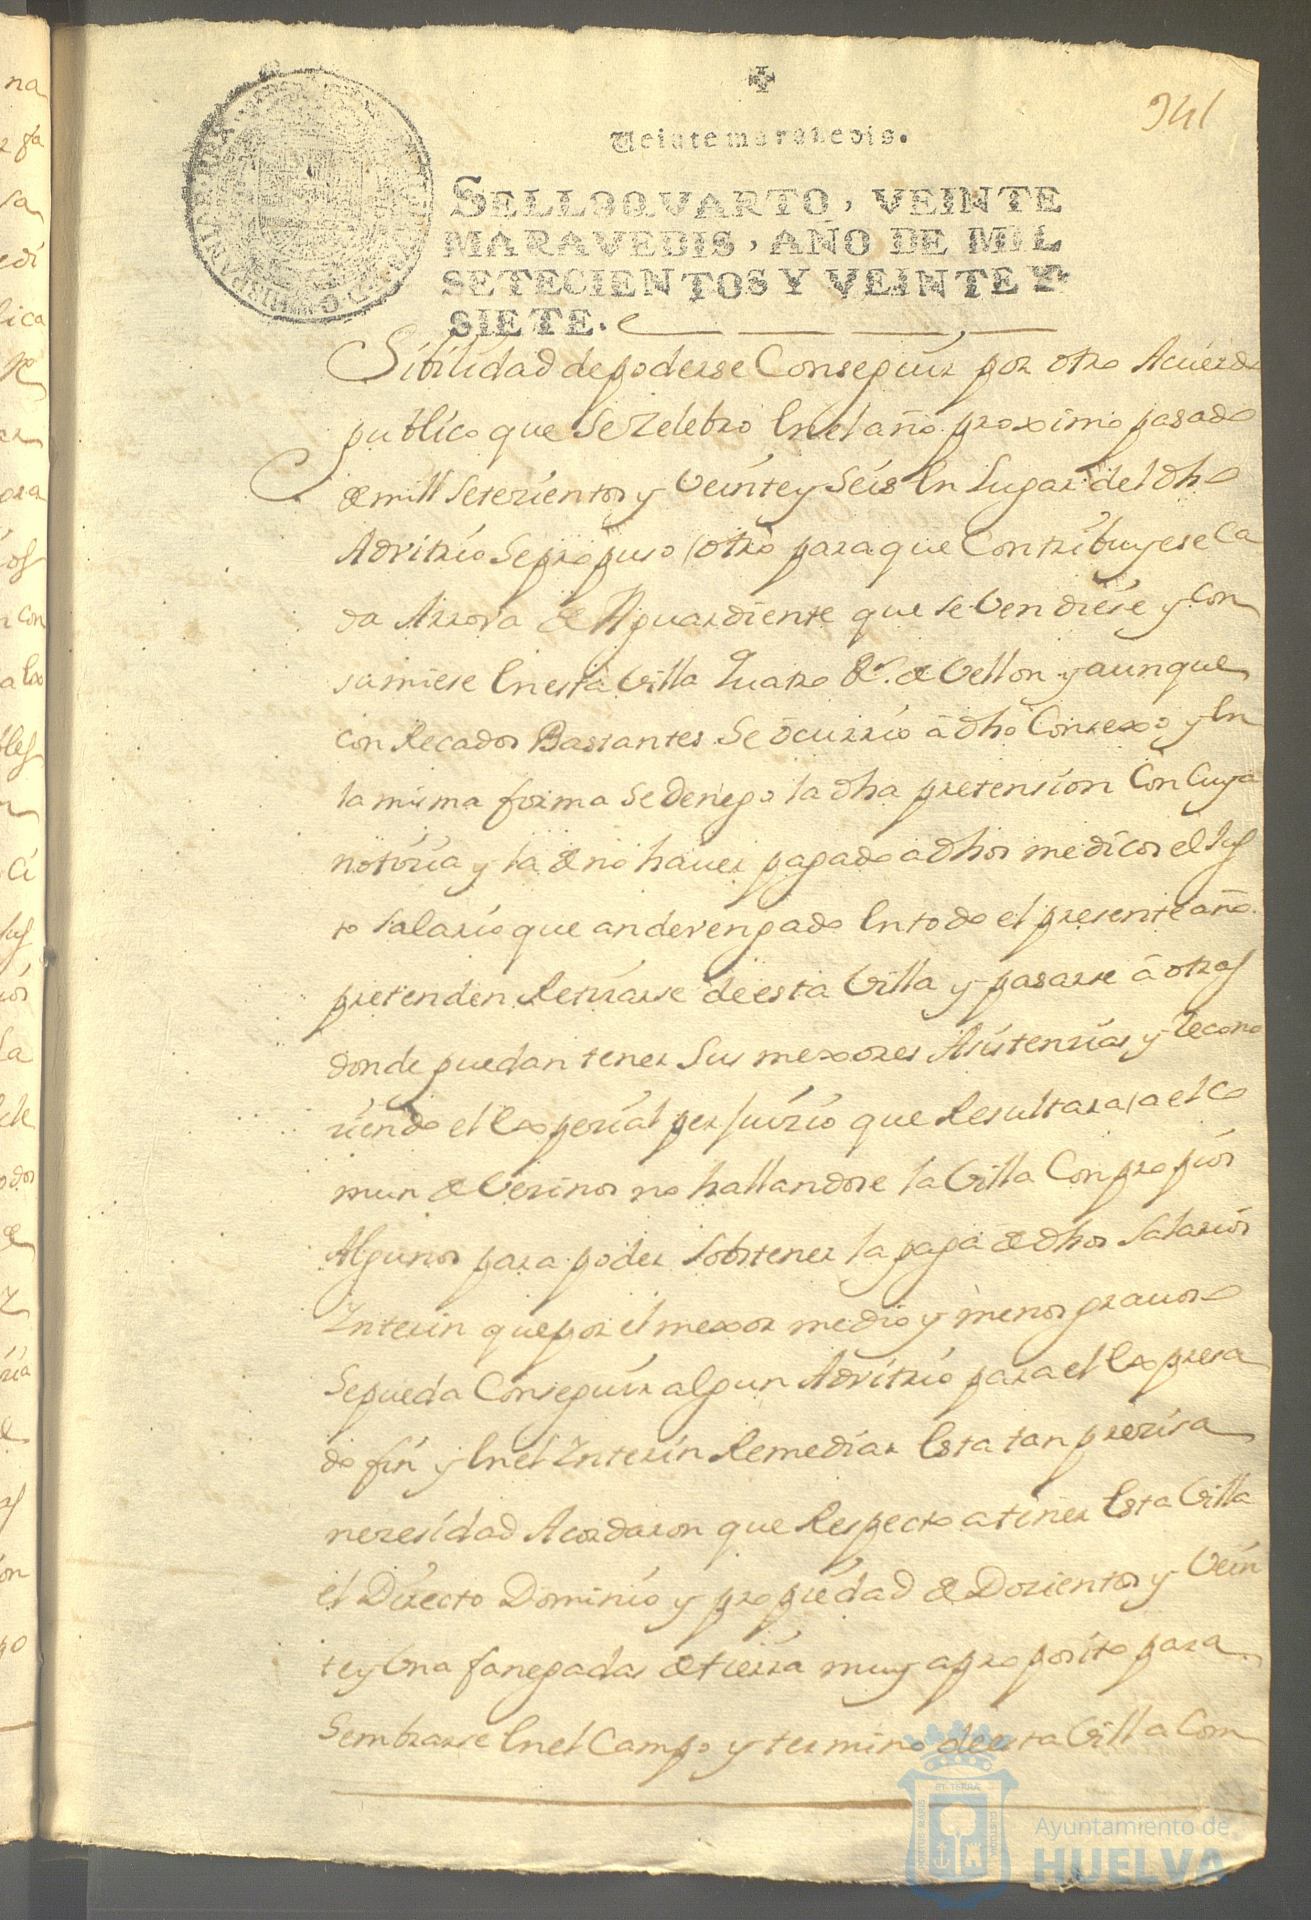 941
Veinte maravedis.
SELLO QVARTO, VEINTE
MARAVEDIS, AÑO DE MIL
SETECIENTOS Y VEINTE Y
SIETE.
Sibilidad de poderse Conseguir por otro Acuerdo
publico que se Zelebro En el año proximo pasado
de mill Setezientos y Veinte y Seis En Lugar del dho
Advitrio Se propuso otro para que Contribuyese Ca
da Arrova de Aguardiente que se Vendiese y con
sumiese En esta Villa Quatro Rs. de Vellon y aunque
con Recados Bastantes Se ocurrio â dho Consexo y En
la misma forma Se denego la dha pretension Con Cuya
notoria y la de no haver pagado a dhos medicos el Jus
to Salario que an devengado En todo el presente año
pretenden Retirarse de esta Villa y pasarse â otras
donde puedan tener Sus mexores Asistenzias y Recono
ziendo el Expezial perjuizio que Resultara a el Co
mun de Vezinos no hallandose la Villa Con propios
Algunos para poder Sobstener la paga de dhos Salarios
Interin que por el mexor medio y menos gravoso
Se pueda Conseguir algun Advitrio para el Expresa
do fin y En el Interin Remediar Esta tan preziza
nezesidad Acordaron que Respecto a tener Esta Villa
el Directo Dominio y propiedad de Dozientos y Vein
te y Una fanegadas de tierra muy aproposito para
Sembrarse En el Campo y termino de esta Villa Con
na
sa
edi
lica
ora
con
a las
Ayuntamiento de
HUELVA